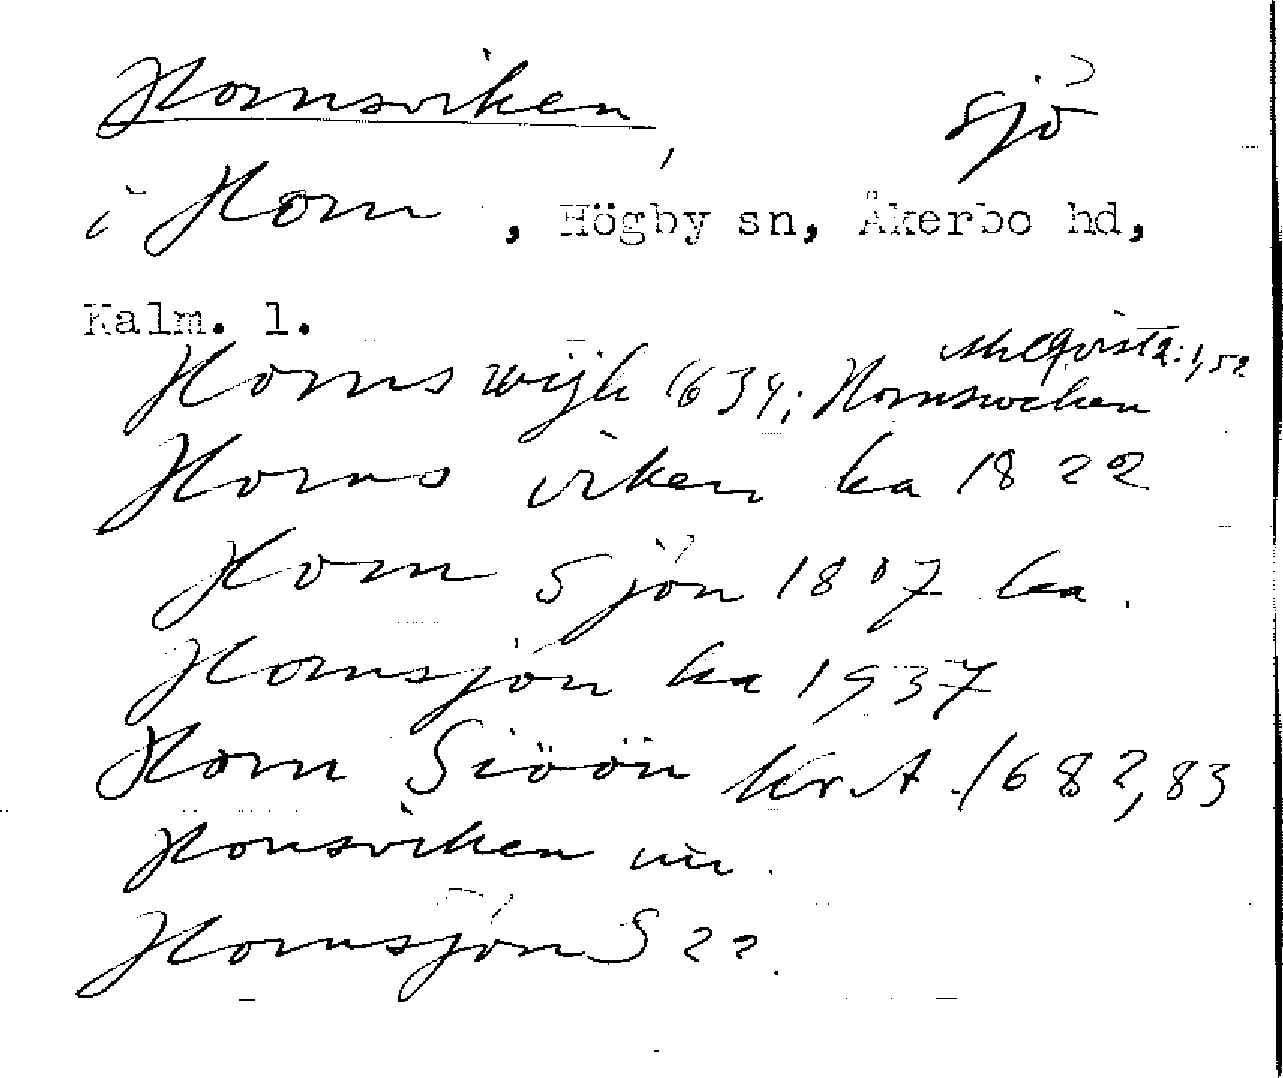 Hornsviken sjö
i Horn, Högby sn, Åkerbo hd,
Kalm. l.
Horns wijk 1634; Hornswiken Ahlqvist 2:1,52
Horns viken ka 1822
Horn Sjön 1807 ka.
Hornsjön ka 1937
Horn Siöön krt 1682,83
Honsviken un.
Hornsjön S 22.